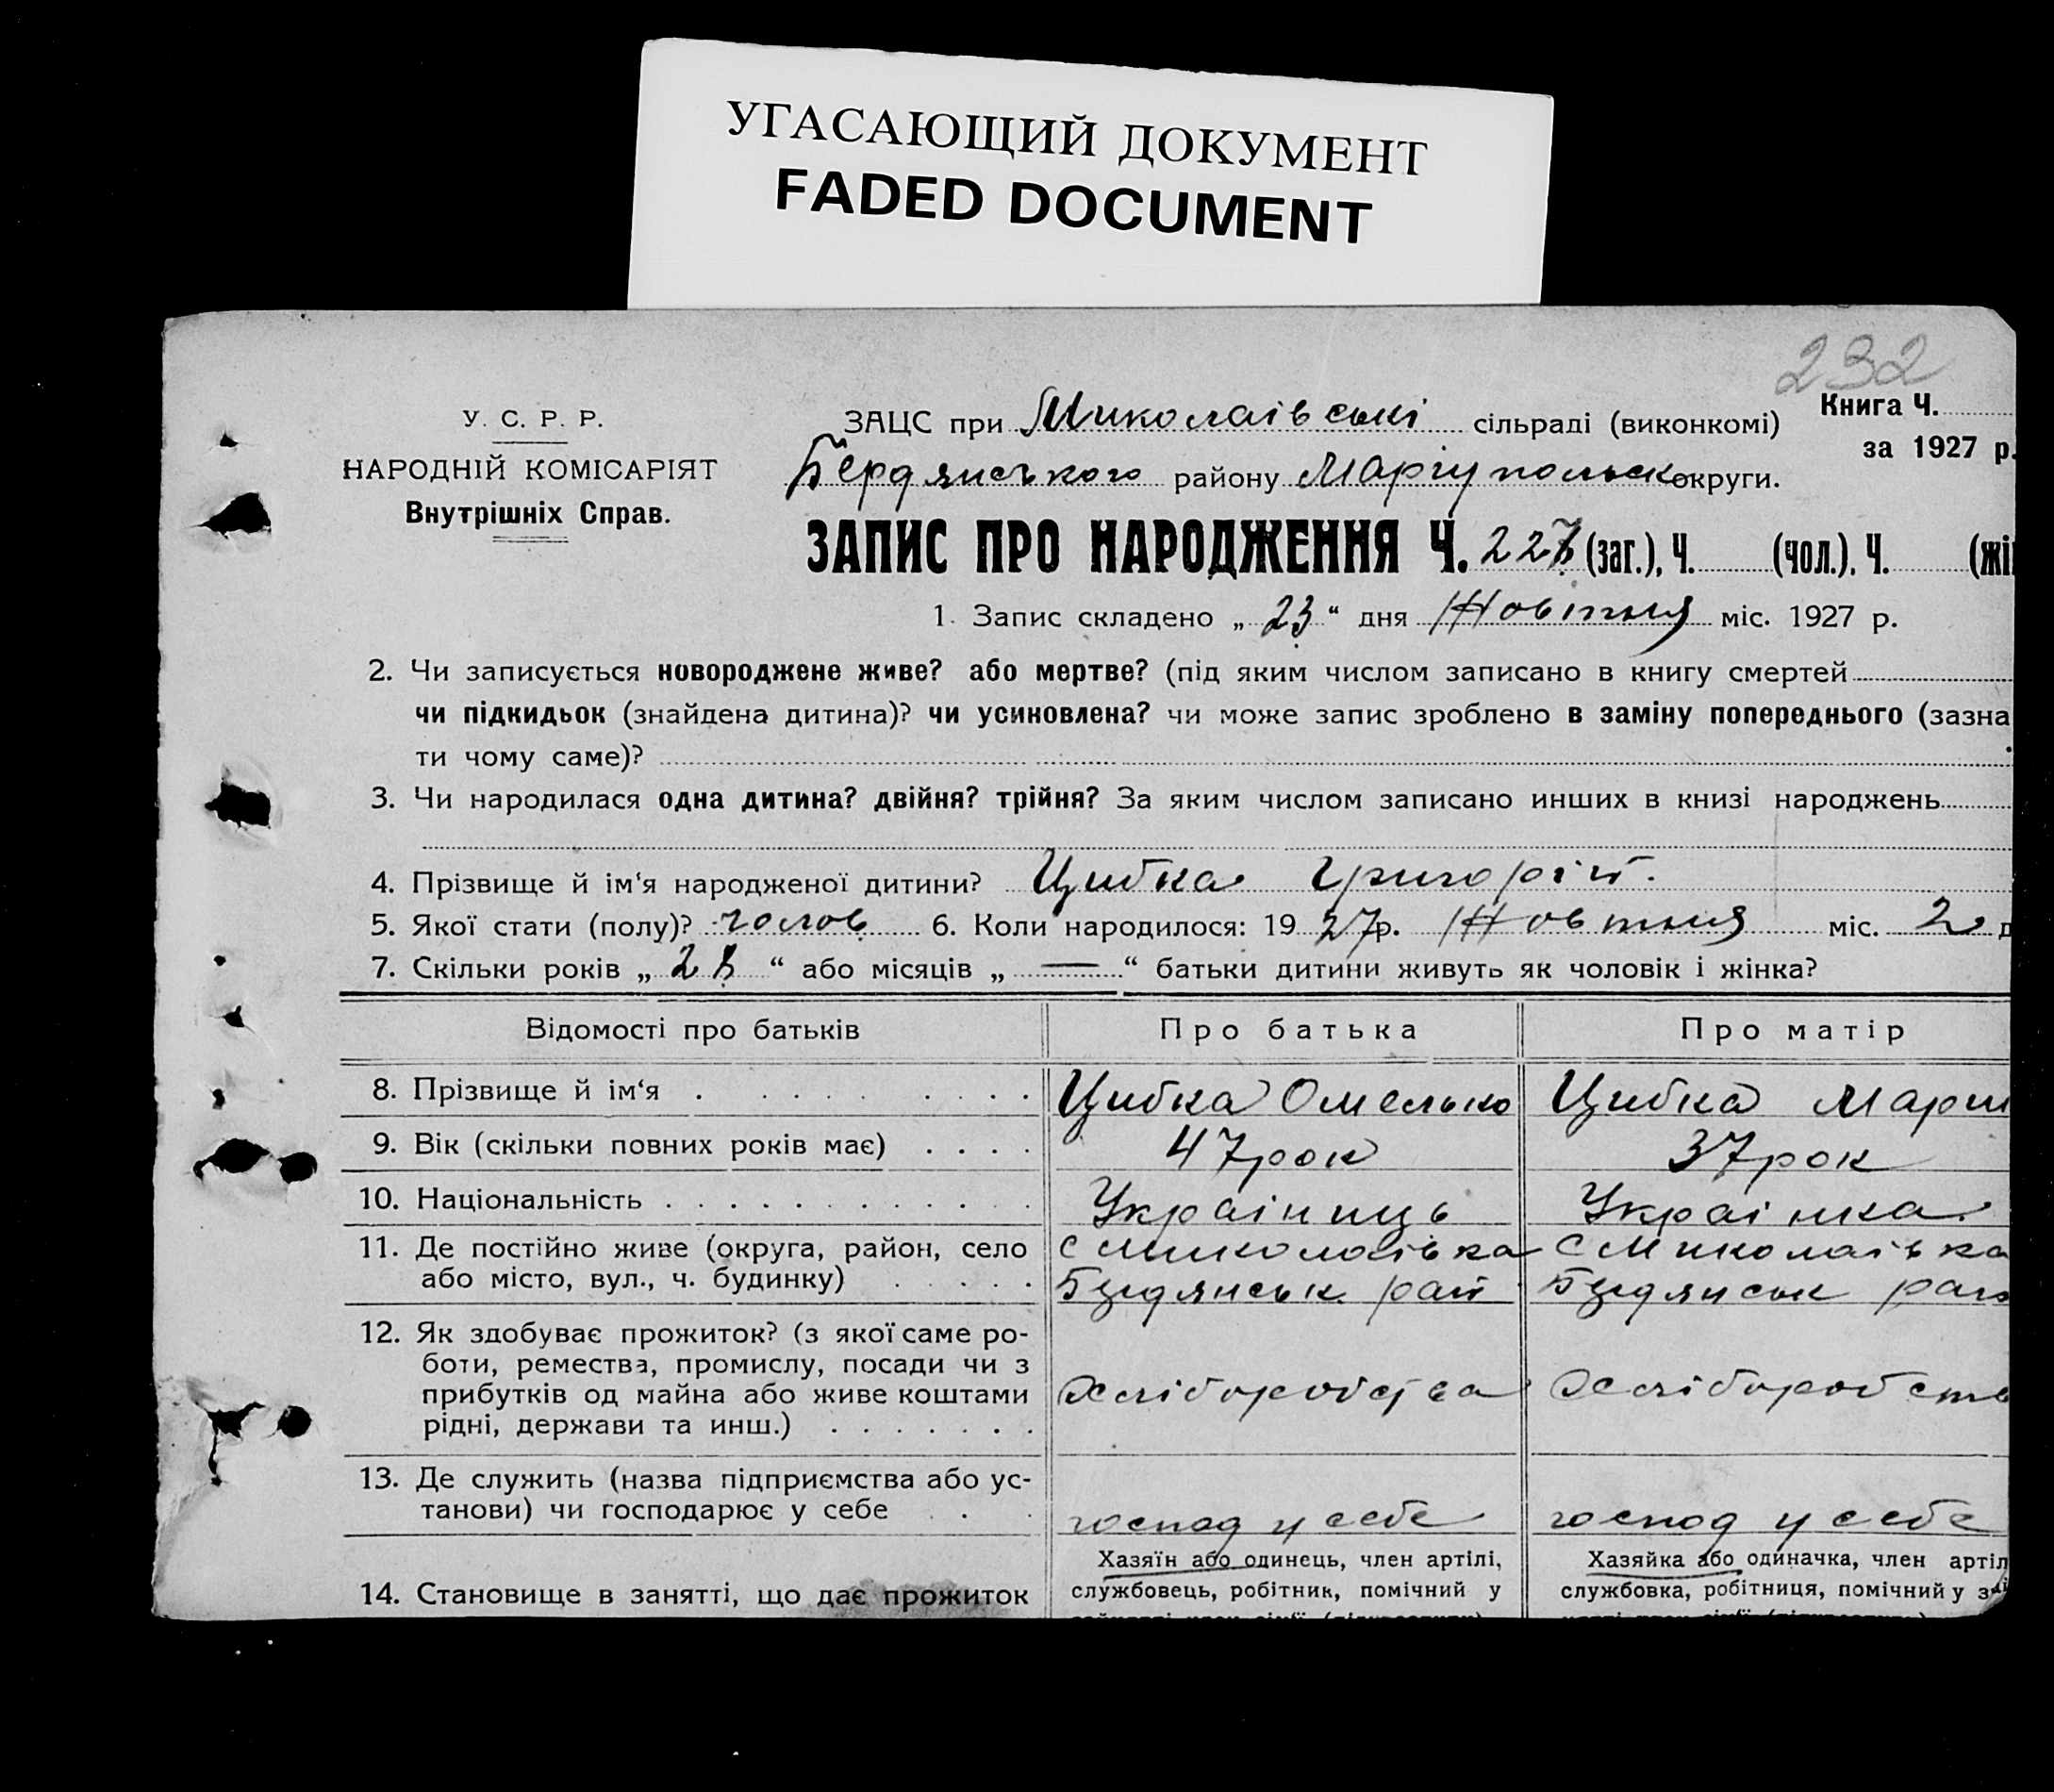 УГАСАЮЩИЙ ДОКУМЕНТ
FADED DOCUMENT
232
У. С. Р. Р.
НАРОДНІЙ КОМІСАРІЯТ
Внутрішніх Справ.
ЗАЦС при Миколаівські сільраді (виконкомі)
Книга Ч.
за 1927 р.
Бердянського району Маріупольск округи.
ЗАПИС ПРО НАРОДЖЕННЯ Ч. 227 (заг.), Ч. (чол.), Ч. (жі
1. Запис складено „ 23 “ дня Жовтня міс. 1927 р.
2. Чи записується новороджене живе? або мертве? (під яким числом записано в книгу смертей
чи підкидьок (знайдена дитина)? чи усиновлена? чи може запис зроблено в заміну попереднього (зазна
ти чому саме)?
3. Чи народилася одна дитина? двійня? трійня? За яким числом записано инших в книзі народжень
4. Прізвище й ім‘я народженої дитини? Цибка Григорій.
5. Якої стати (полу)? чолов 6. Коли народилося: 19 27 р. Жовтня міс. 2 д
7. Скільки років „ “ або місяців „ — “ батьки дитини живуть як чоловік і жінка?
Відомості про батьків
Про батька
Про матір
8. Прізвище й ім‘я
Цибка Омелько
Цибка Мари
9. Вік (скільки повних років має)
47 рок
37 рок
10. Національність
Украінець
Украінка
11. Де постійно живе (округа, район, село
або місто, вул., ч. будинку)
с Миколаівка
Бердянськ рай
с Миколаівка
Бердянськ рай
12. Як здобуває прожиток? (з якої саме ро-
боти, ремества, промислу, посади чи з
прибутків од майна або живе коштами
рідні, держави та инш.)
Хліборобства
Хліборобств
13. Де служить (назва підприємства або ус-
танови) чи господарює у себе
господ у себе
господ у себе
14. Становище в занятті, що дає прожиток
Хазяїн або одинець, член артілі,
службовець, робітник, помічний у
Хазяйка або одиначка, член артіл
службовка, робітниця, помічний у з